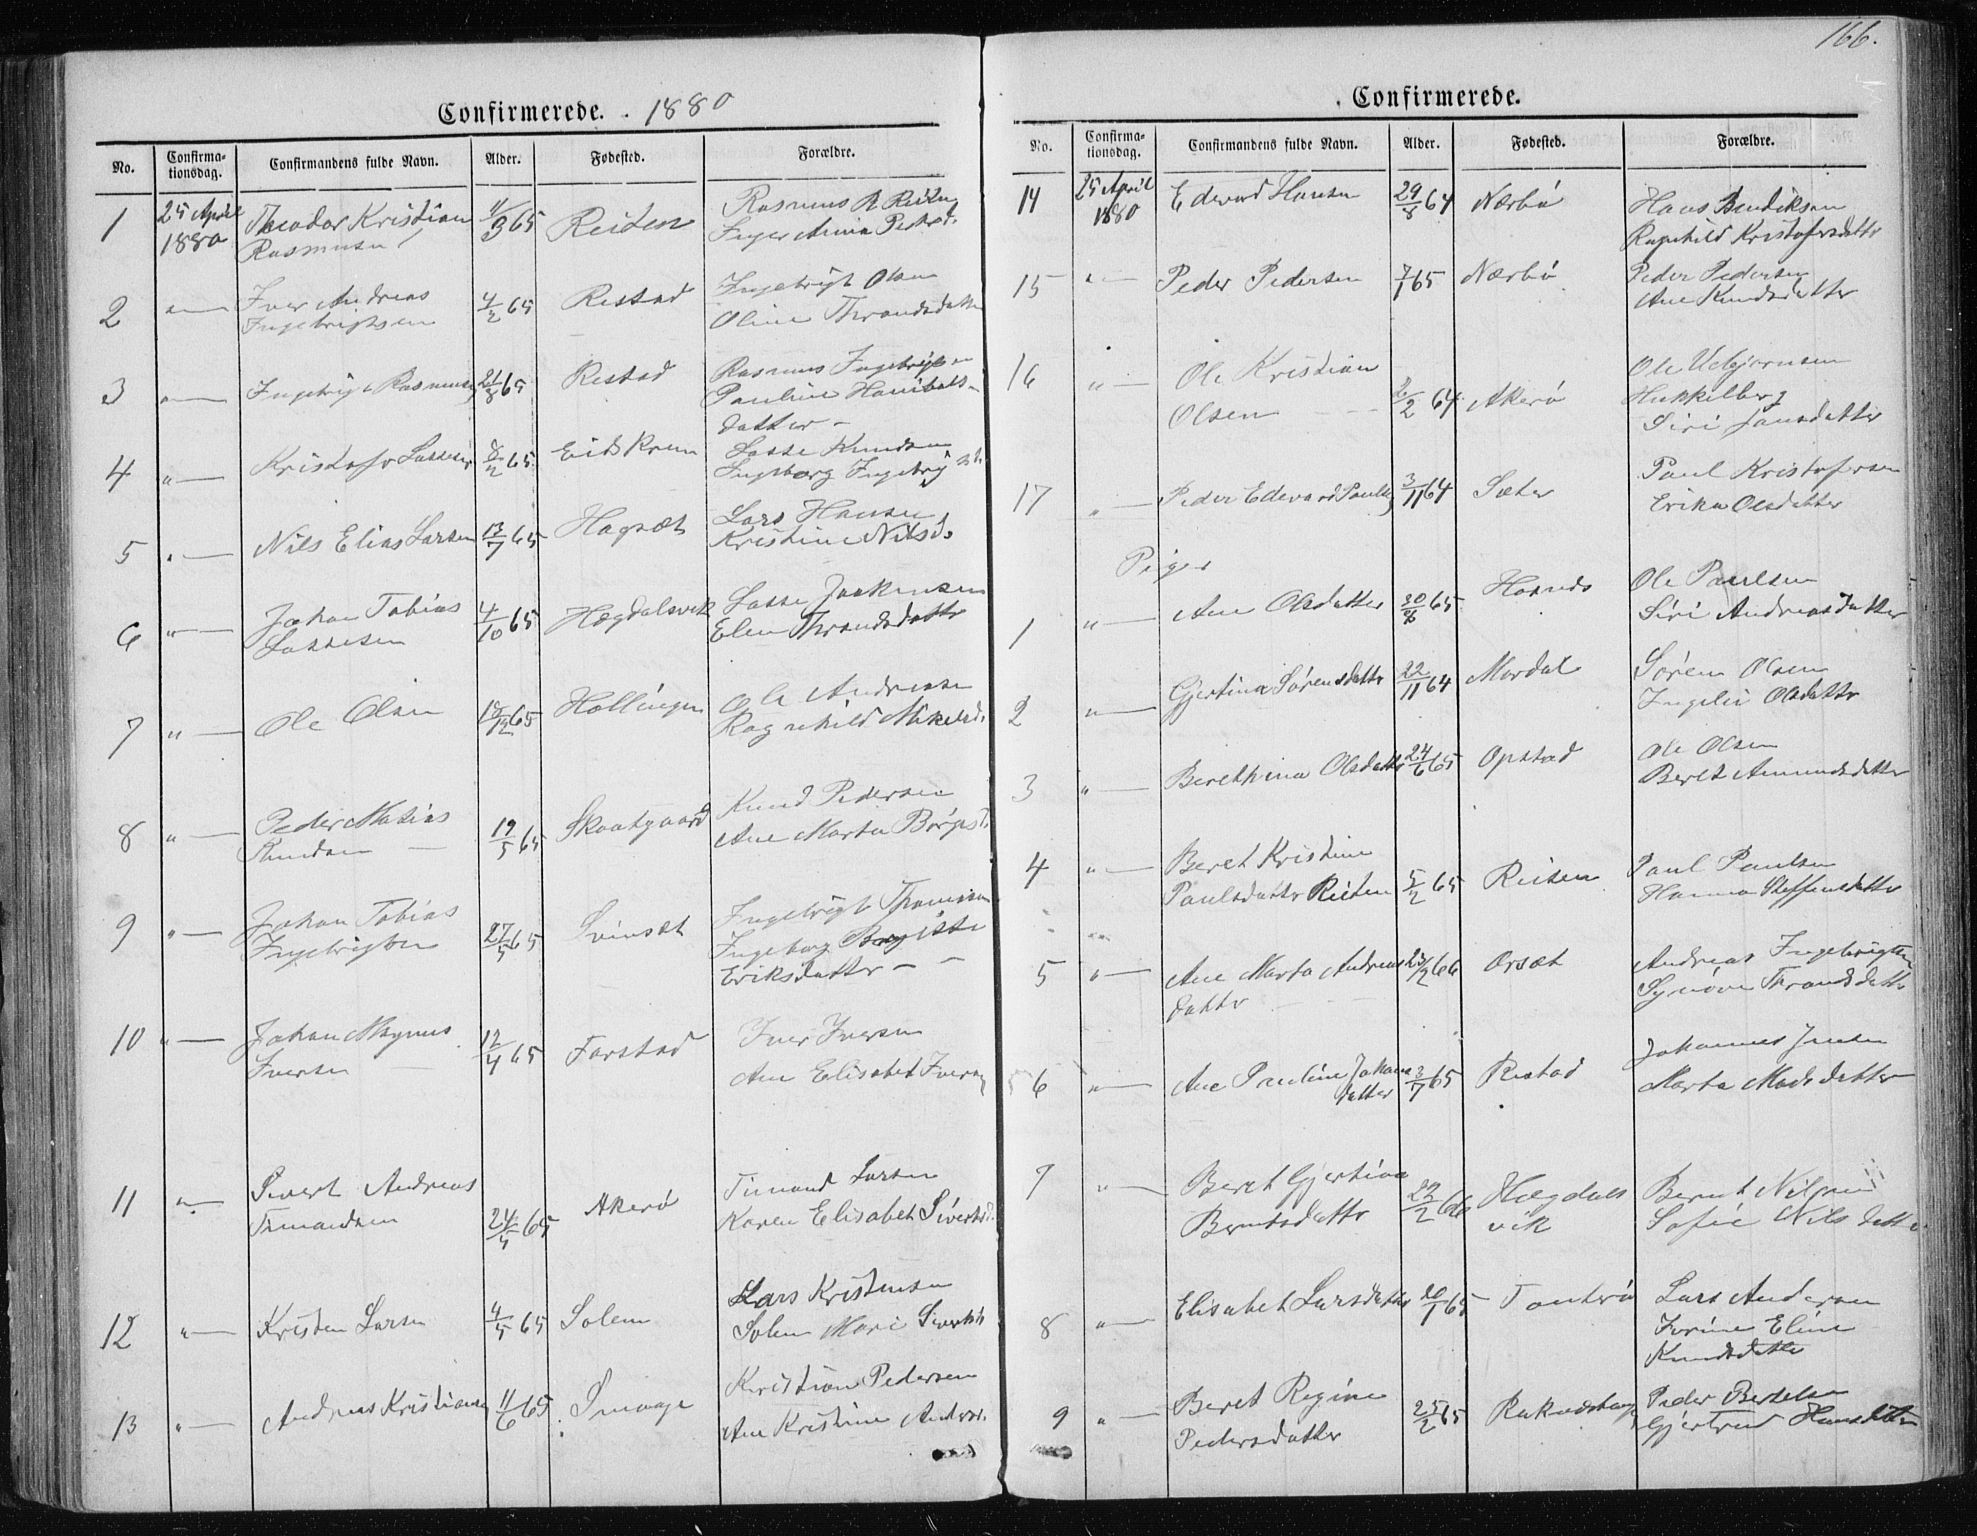 Confirmerede. 1880
No.
Confirma-
tionsdag.
Confirmandens fulde Navn.
Alder.
Fødested.
Forældre.
1
25 April
1880
Theodor Kristian
Rasmusen
3 65
Reiten
Rasmus R Reiten
Inger Anna Peders.
2
"
Iver Andreas
Ingebrigtsen
4/2 65
Restad
Ingebrigt Olsen
Oline Throndsdatter
3
Ingebrigt Rasmusen
21/8 65
Restad
Rasmus Ingebrigtsen
Pauline Hanibals-
datter -
4
"
Kristofer Lassesen
8/2 65
Eidskrem
Lasse Knudsen
Ingeborg
5
"
Nils Elias Larsen
13/7 65
Hagsæt
Lars Hansen
Kristine Nilsd.
6
"
Johan Tobias
Lassesen
4/10 65
Hægdalsvik
Lasse Joakimsen
Elen Throndsdatter
7
"
Ole Olsen
65
Hollingen
Ole Andresen
Ragnhild Mikelsd.
8
"
Peder Matias
Knudsen
19/5 65
Skootgaard
Knud Pedersen
Ane Marta
9
"
Johan Tobias
Ingebrigtsen
27/5 65
Svinsæt
Ingebrigt
Ingeborg
Eriksdatter - -
10
"
Johan Magnus
Iversen
12/4 65
Farstad
Iver Iversen
Ane Elisabet Iversd
11
"
Sivert Andreas
Timandsen
24/5 65
Akerø
Timand Larsen
Karen Elisabet Sivertsd.
12
"
Kristen Larsen
4/5 65
Solem
Lars Kristensen
Solem Mari Sivertsd
13
"
Andreas Kristiansen
11/6 65
Smaage
Kristian Pedersen
Ane Kristine Andrsd.
166.
Confirmerede.
No.
Confirma-
tionsdag.
Confirmandens fulde Navn.
Alder.
Fødested.
Forældre.
14
25 April
1880
Edevard Hansen
29/8 64
Nærbø
Hans Bendiksen
Ragnhild Kristofersdatter
15
"
Peder Pedersen
7/1 65
Nærbø
Peder Pedersen
Ane Knudsdatter
16
"
Ole Kristian
Olsen
2/2 64
Akerø
Ole
Hukkelberg
Siri Jansdatter
17
"
Peder Edevard Paulsen
3/11 64
Sæter
Paul Kristofersen
Erika Olsdatter
Piger
1
"
Ane Olsdatter
65
Ole Paulsen
Siri Andreasdatter
2
"
Gjertina Sørensdatter
22/11 64
Mordal
Søren Olsen
Ingeli Olsdatter
3
"
Berethina Olsdatter
24/6 65
Opstad
Ole Olsen
Beret Amundsdatter
4
"
Beret Kristine
Paulsdatter Reiten
5/2 65
Reiten
Paul Paulsen
Hanna Steffensdatter
5
"
Ane Marta Andreas
datter
23/2 66
Orsæt
Andreas Ingebrigtsen
Synøve Throndsdatter
6
"
Ane Pauline Johans
datter
3/7 65
Restad
Johannes Jensen
Marta Madsdatter
7
"
Beret Gjertina
Berntsdatter
22/2 66
Hægdals
vik
Bernt Nilsen
Sofie Nilsdatter
8
"
Elisabet Larsdatter
20/1 65
Tautrø
Lars Andersen
Jorine Eline
Knudsdatter
9
"
Beret Regine
Pedersdatter
25/2 65
Peder Bertelsen
Gjertrud Hansdatter